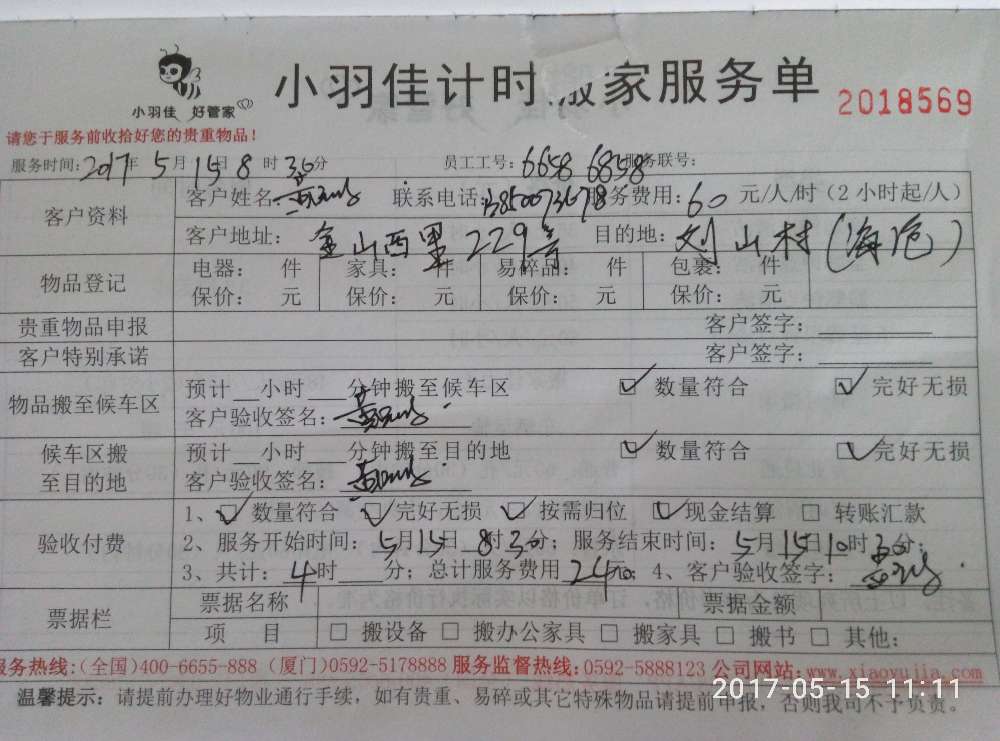 小羽佳 好管家
小羽佳计时搬家服务单
2018569
请您于服务前收拾好您的贵重物品!
服务时间: 2017年 5月 15日 8时 30分 员工工号: 6658 6858 服务联号:
客户资料
客户姓名: 联系电话: 服务费用: 60 元/人/时(2小时起/人)
客户地址: 金山西里 229号 目的地: 刘山村(海沧)
物品登记
电器: 件 家具: 件 易碎品: 件 包裹: 件
保价: 元 保价: 元 保价: 元 保价: 元
贵重物品申报 客户签字:
客户特别承诺 客户签字:
物品搬至候车区
预计__小时__分钟搬至候车区 数量符合 完好无损
客户验收签名:
候车区搬至目的地
预计__小时__分钟搬至目的地 数量符合 完好无损
客户验收签名:
验收付费
1、数量符合 完好无损 按需归位 现金结算 转账汇款
2、服务开始时间: 5月15日 8时30分; 服务结束时间: 5月15日10时30分;
3、共计: 4时__分; 总计服务费用 240元; 4、客户验收签字:
票据栏
票据名称 票据金额
项 目 □ 搬设备 □ 搬办公家具 □ 搬家具 □ 搬书 □ 其他:
服务热线:(全国)400-6655-888 (厦门)0592-5178888 服务监督热线:0592-5888123 公司网站:www.xiaoyujia.com
2017-05-15 11:11
温馨提示: 请提前办理好物业通行手续,如有贵重、易碎或其它特殊物品请提前申报,否则我司不予负责。